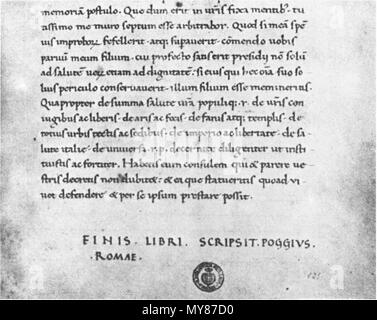 memoriam postulo. Quae dum erit in uris fixa mentibus. tu
tissimo me muro septum esse arbitrabor. Quod si meã spem
uis improborum fefellerit atq; supauerit. cõmendo uobis
paruũ meum filium. cui profecto satis erit presidij nõ solũ
ad salutẽ uerũ etiam ad dignitatẽ. si eius qui hec oĩa suo so
lius periculo conseruauerit. illum filium esse memineritis.
Quapropter de summa salute urã populiq; r. de uris con
iugibus ac liberis. de aris ac focis. de fanis atq; templis. de
totius urbis tectis ac sedibus. de imperio ac libertate. de sa
lute italie. de uniuersa .r.p. decernite diligenter ut insti
tuistis ac fortiter. Habetis eum consulem qui & parere ue
stris decretis non dubitet. & ea que statueritis quoad ui
uet defendere & per se ipsum prestare possit.
FINIS. LIBRI. SCRIPSIT. POGGIVS.
.ROMAE.
alamy
Image ID: MY87D0
www.alamy.com